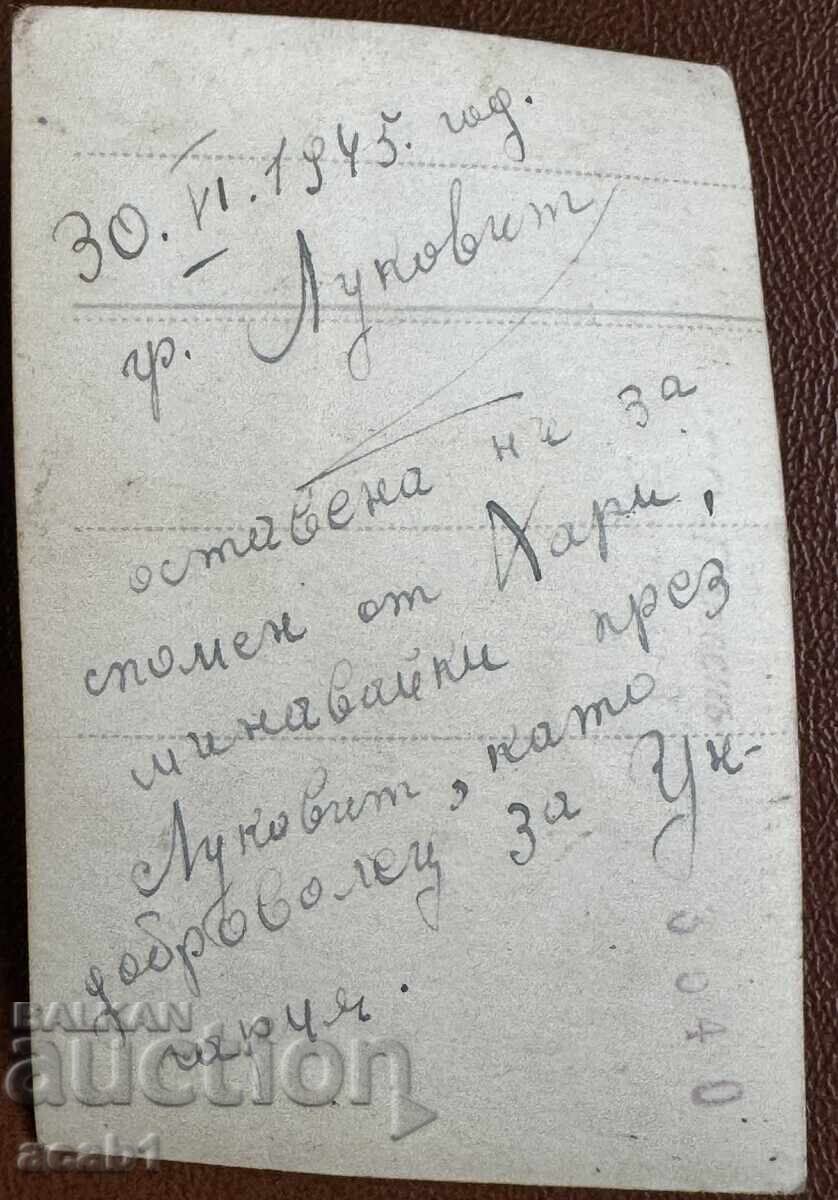 30. VI. 1945. год.
гр. Луковит
оставена ни за
спомен от Хари,
минавайки през
Луковит, като
доброволец за Ун-
гария.
0040
BALKAN
auction
acab1